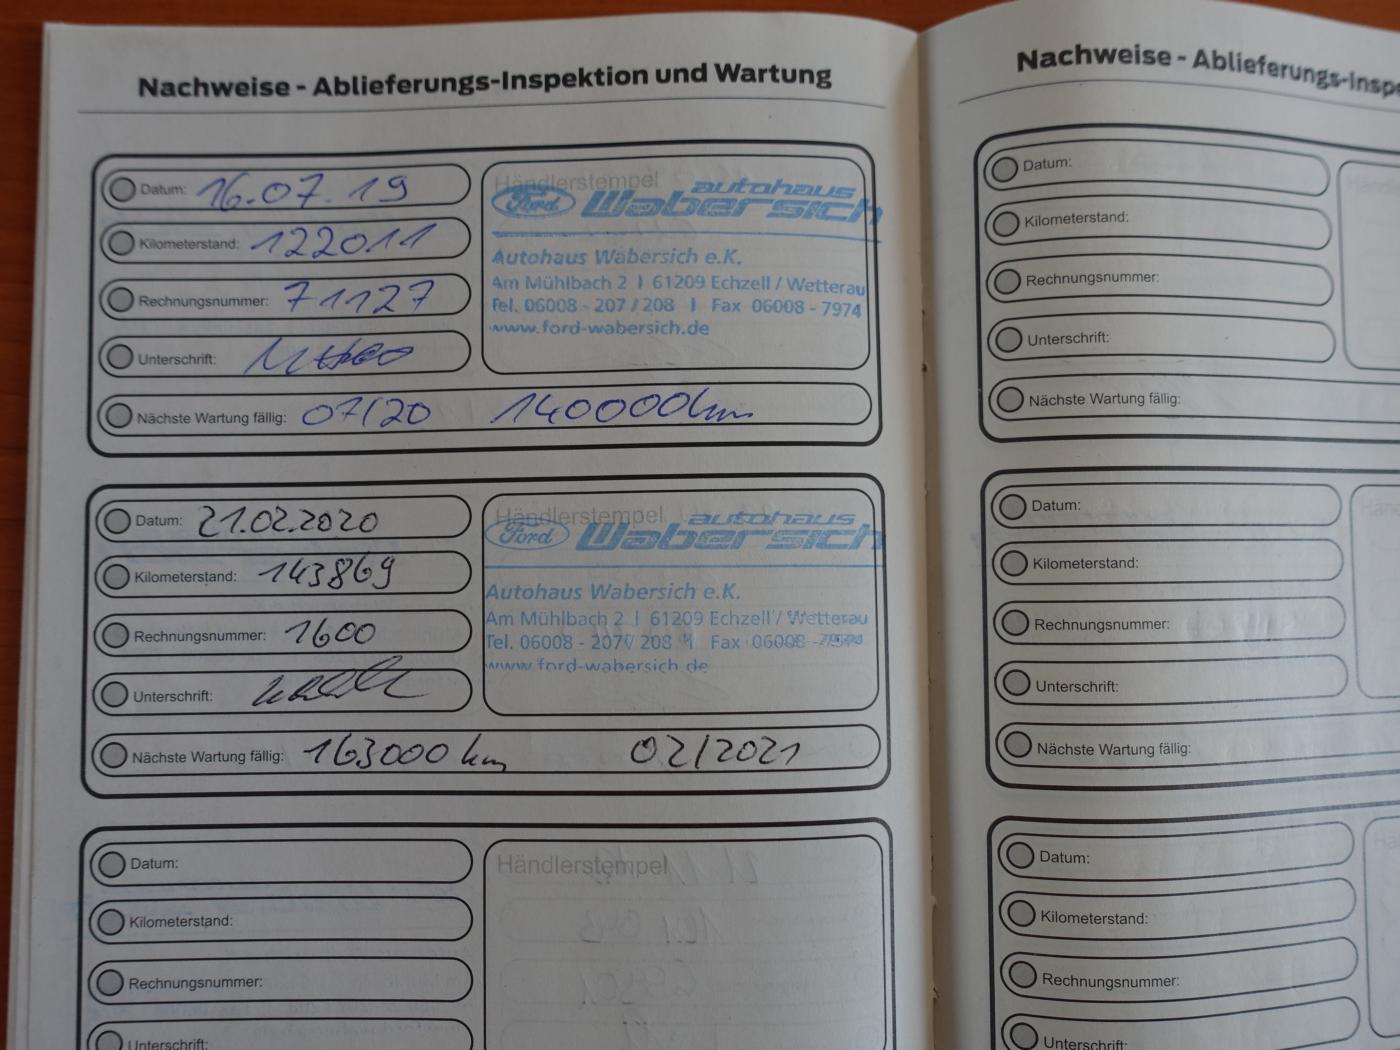 Nachweise - Ablieferungs-Inspektion und Wartung
Datum: 16.07.19
Kilometerstand: 122011
Rechnungsnummer: 71127
Unterschrift:
Nächste Wartung fällig: 07/20 140000km
Händlerstempel
Ford autohaus Wabersich
Autohaus Wabersich e.K.
Am Mühlbach 2 | 61209 Echzell / Wetterau
Tel. 06008 - 207 / 208 | Fax 06008 - 7974
www.ford-wabersich.de
Datum: 21.02.2020
Kilometerstand: 143869
Rechnungsnummer: 1600
Unterschrift:
Nächste Wartung fällig: 163000 km 02/2021
Händlerstempel
Ford autohaus Wabersich
Autohaus Wabersich e.K.
Am Mühlbach 2 | 61209 Echzell / Wetterau
Tel. 06008 - 207 / 208 | Fax 06008 - 7974
www.ford-wabersich.de
Datum:
Kilometerstand:
Rechnungsnummer:
Unterschrift:
Händlerstempel
Nachweise - Ablieferungs-Inspe
Datum:
Kilometerstand:
Rechnungsnummer:
Unterschrift:
Nächste Wartung fällig:
Datum:
Kilometerstand:
Rechnungsnummer:
Unterschrift:
Nächste Wartung fällig:
Datum:
Kilometerstand:
Rechnungsnummer:
Unterschrift: